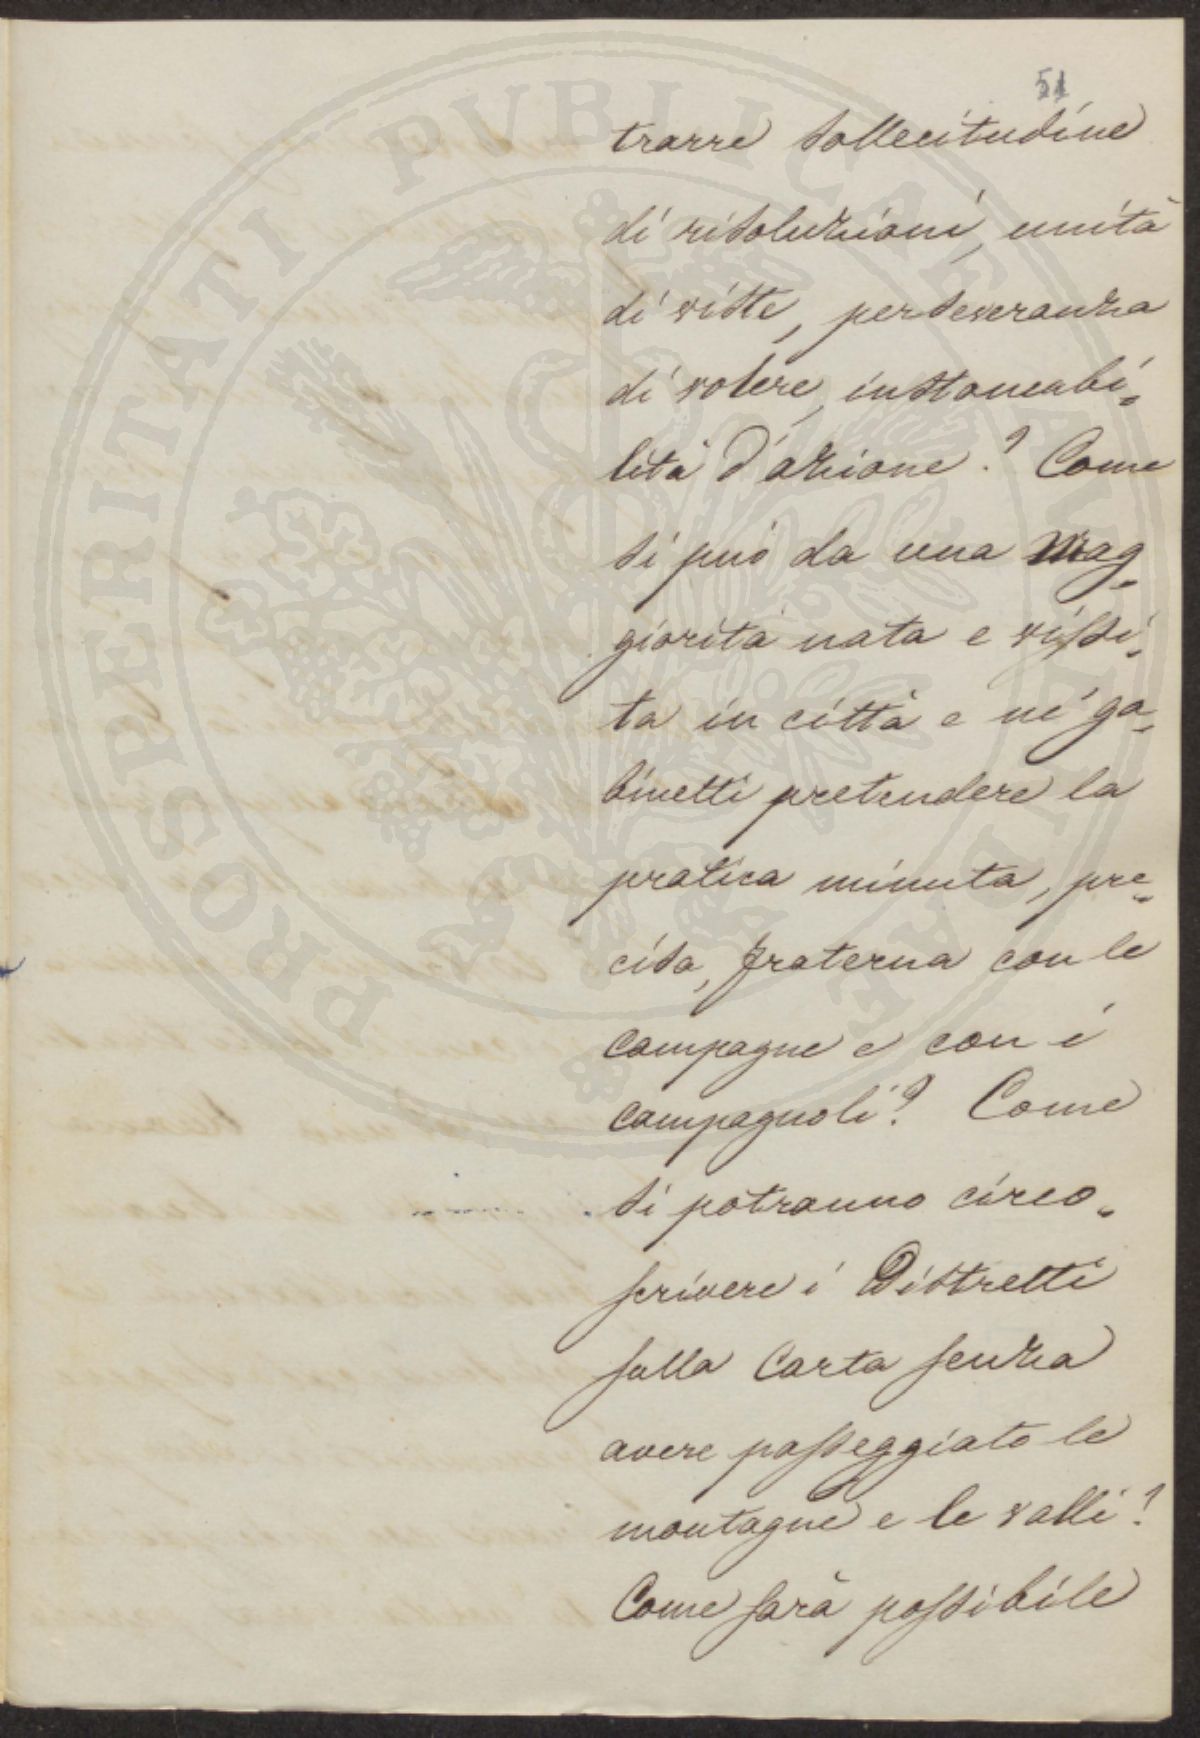 51
trarre sollecitudine
di risoluzioni, unità
di viste, perseveranza
di volere, instancabi-
lità d'azione? Come
si può da una Mag-
giorità nata e vissu-
ta in città e ne' ga-
binetti pretendere la
pratica minuta, pre-
cisa, fraterna con le
campagne e con i
campagnoli? Come
si potranno circo-
scrivere i Distretti
sulla Carta senza
avere passeggiato le
montagne e le valli?
Come sarà possibile
PROSPERITATI PUBLICAE AUGENDAE